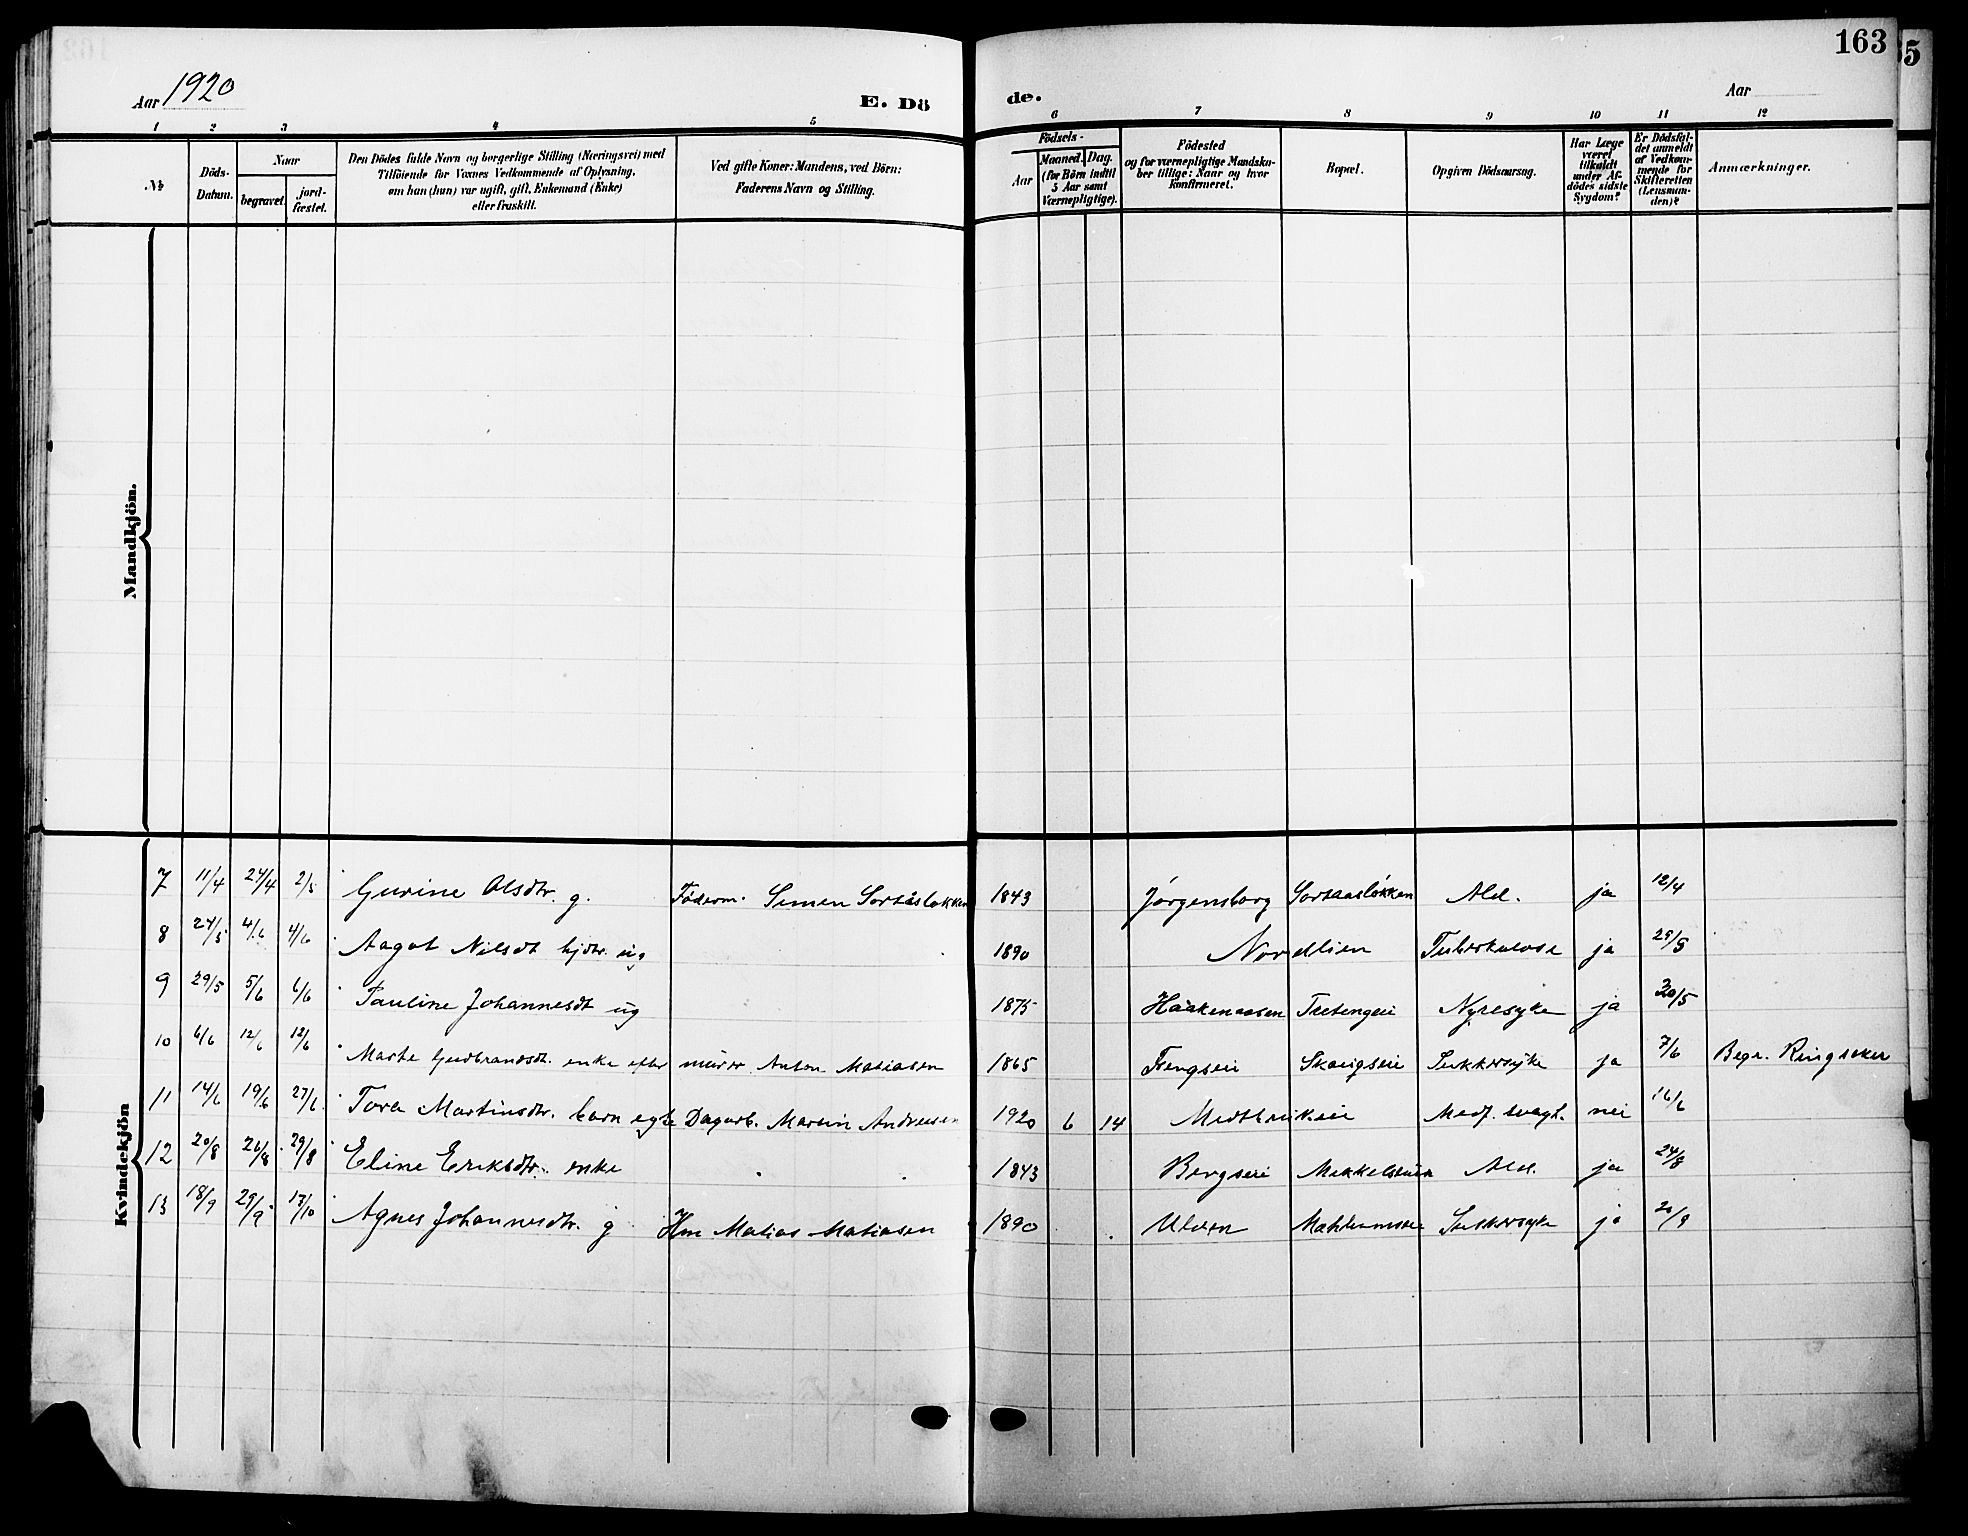 163
5
Aar 1920 E. Dö de. Aar
1 2 3 4 5 6 7 8 9 10 11 12
№
Döds-Datum.
Naar
begravet.
jord-fæstet.
Den Dödes fulde Navn og borgerlige Stilling (Næringsvei) med
Tilföiende for Voxnes Vedkommende af Oplysning,
om han (hun) var ugift, gift, Enkemand (Enke)
eller fraskilt.
Ved gifte Koner: Mandens, ved Börn:
Faderens Navn og Stilling.
Födsels-
Aar
Maaned. Dag.
(for Börn indtil
5 Aar samt
Værnepligtige).
Födested
og for værnepligtige Mandskaber tillige: Naar og hvor
Konfirmeret.
Bopæl.
Opgiven Dödsaarsag.
Har Læge
været
tilkaldt
under Afdödes sidste
Sygdom?
Er Dödsfaldet anmeldt
af Vedkommende for
Skifteretten
(Lensmanden)?
Anmærkninger.
Mandkjön.
Kvindekjön
7 11/4 24/4 2/5 Gurine Olsdtr. g. Föderm. Simen Sortåsløkken 1843 Jørgensborg Sortaasløkken Ald. ja 12/4
8 27/5 4/6 4/6 Aagot Nilsdt hjdtr. ug 1890 Nordlien Tuberkulose ja 29/5
9 29/5 5/6 6/6 Pauline Johannesdt ug 1875 Haakenaasen Tretengeie Nyresyke ja 30/5
10 6/6 12/6 12/6 Marte Gudbrandsdt. enke efter murer Anton Matiasen 1865 Skaugseie Sukkersyke ja 7/6 Begr. Ringsaker
11 14/6 19/6 27/6 Tora Martinsdtr. barn egte Dagarb. Martin Andreesen 1920 6 14 Medf. svagh. nei 16/6
12 20/8 26/8 29/8 Eline Eriksdtr. enke 1843 Bergseie Ald. ja 24/8
13 18/9 29/9 17/10 Agnes Johannesdtr. g Hm Matias Matiasen 1890 Ulven Sukkersyke ja 20/9